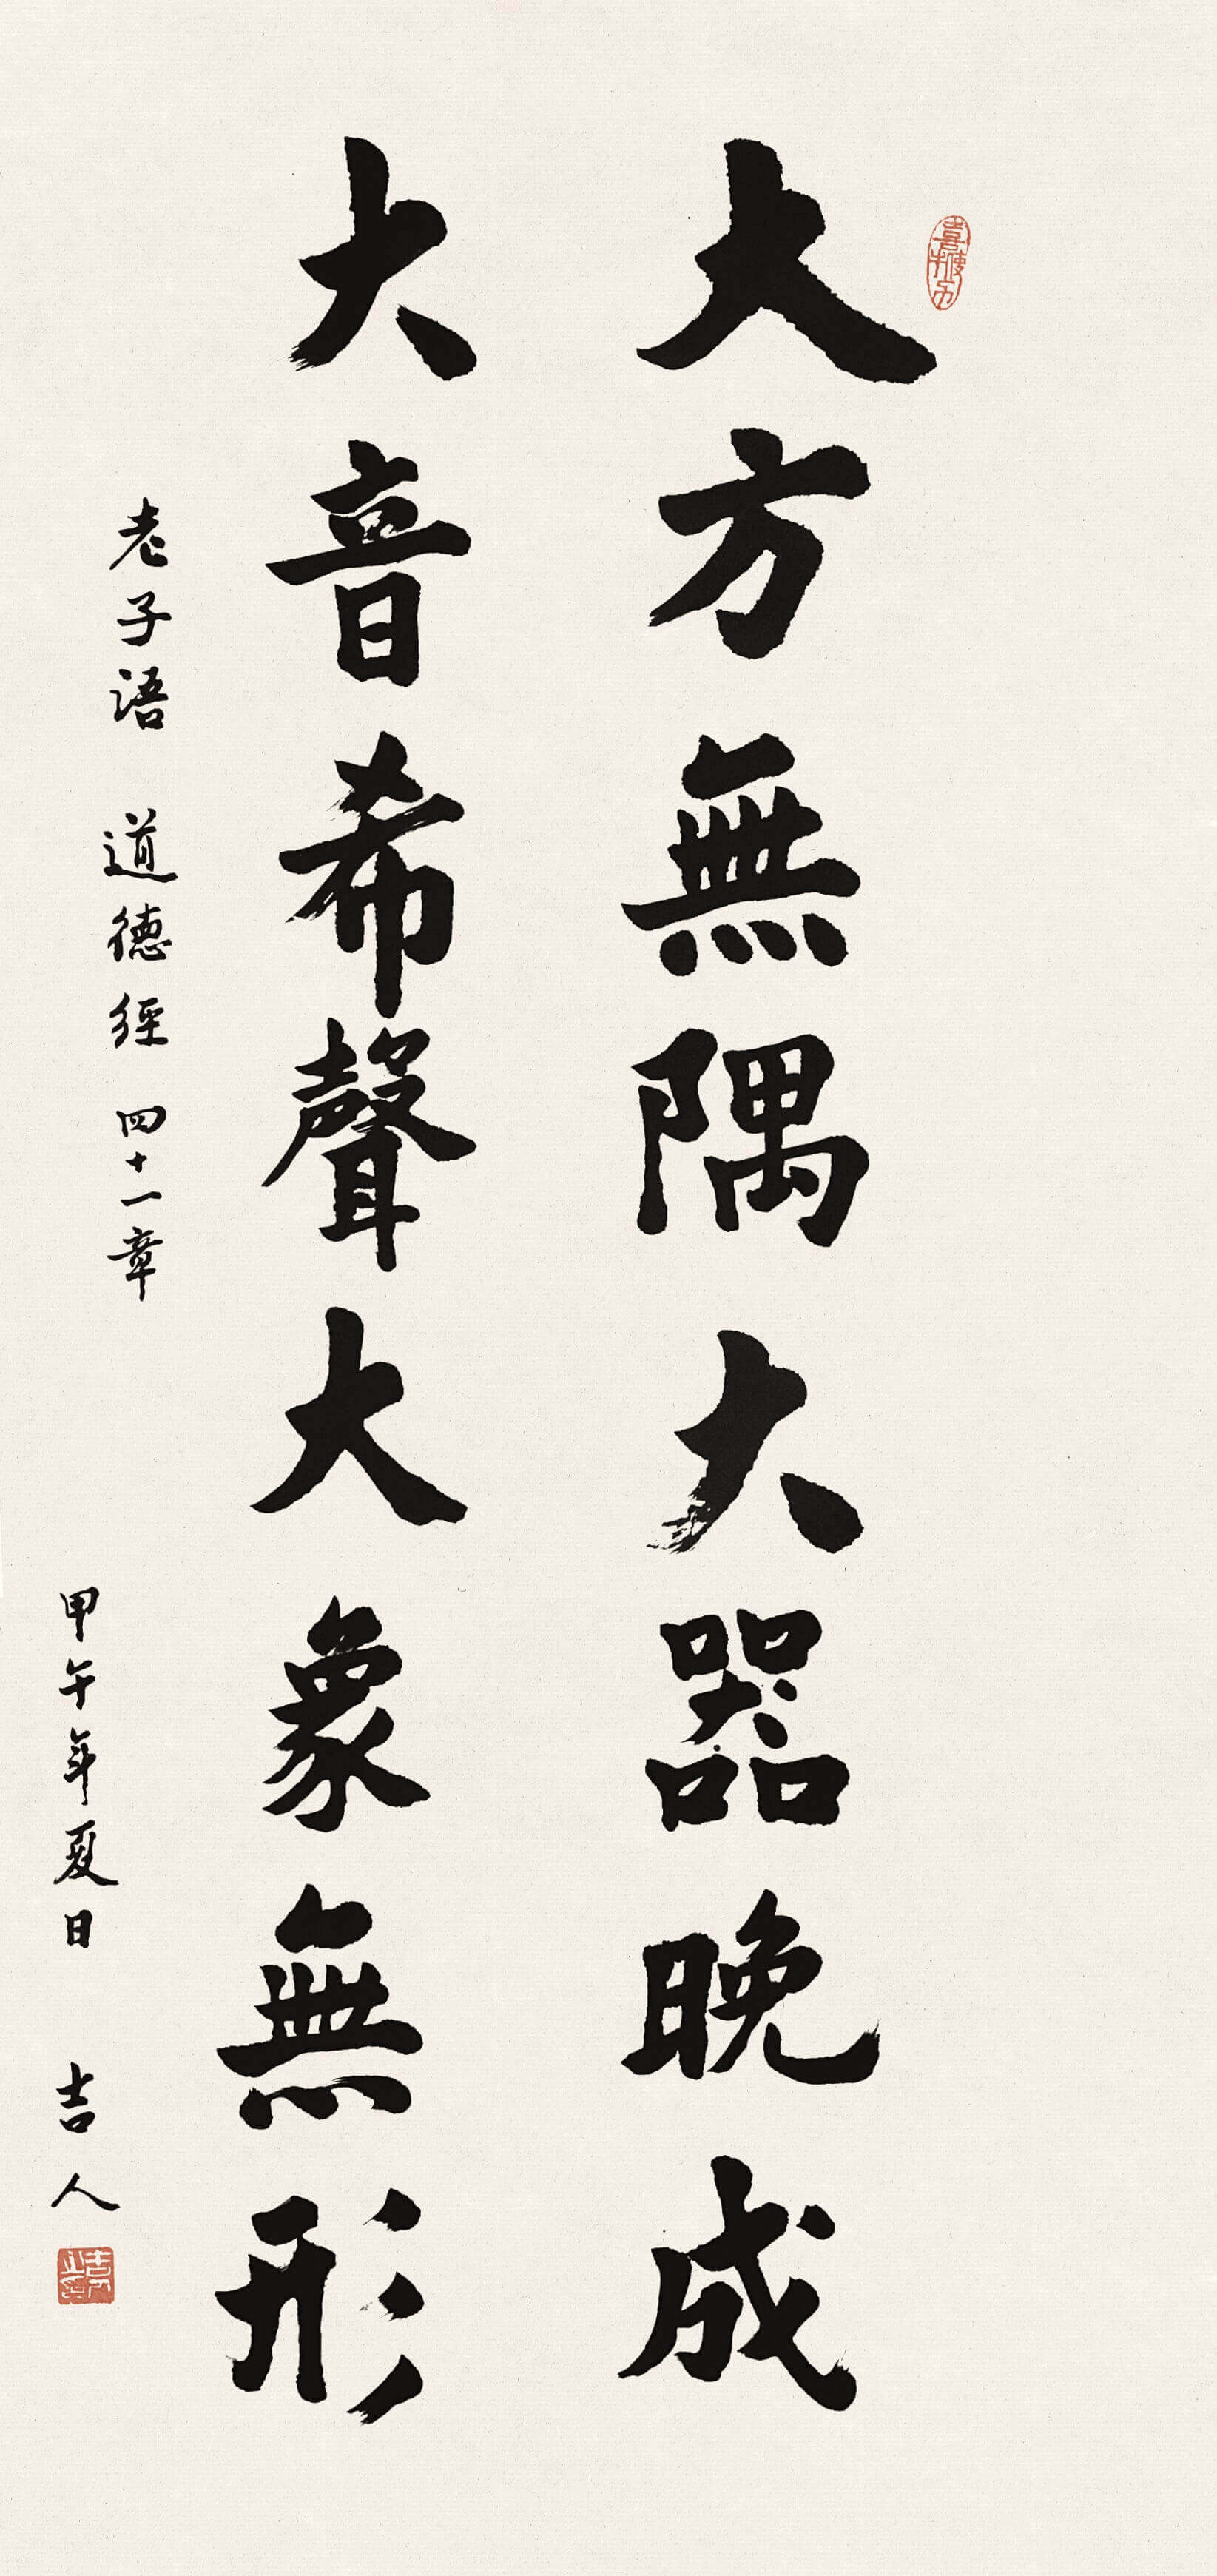 大方無隅大器晚成
大音希聲大象無形
老子語 道德經 四十一章
甲午年夏日 吉人